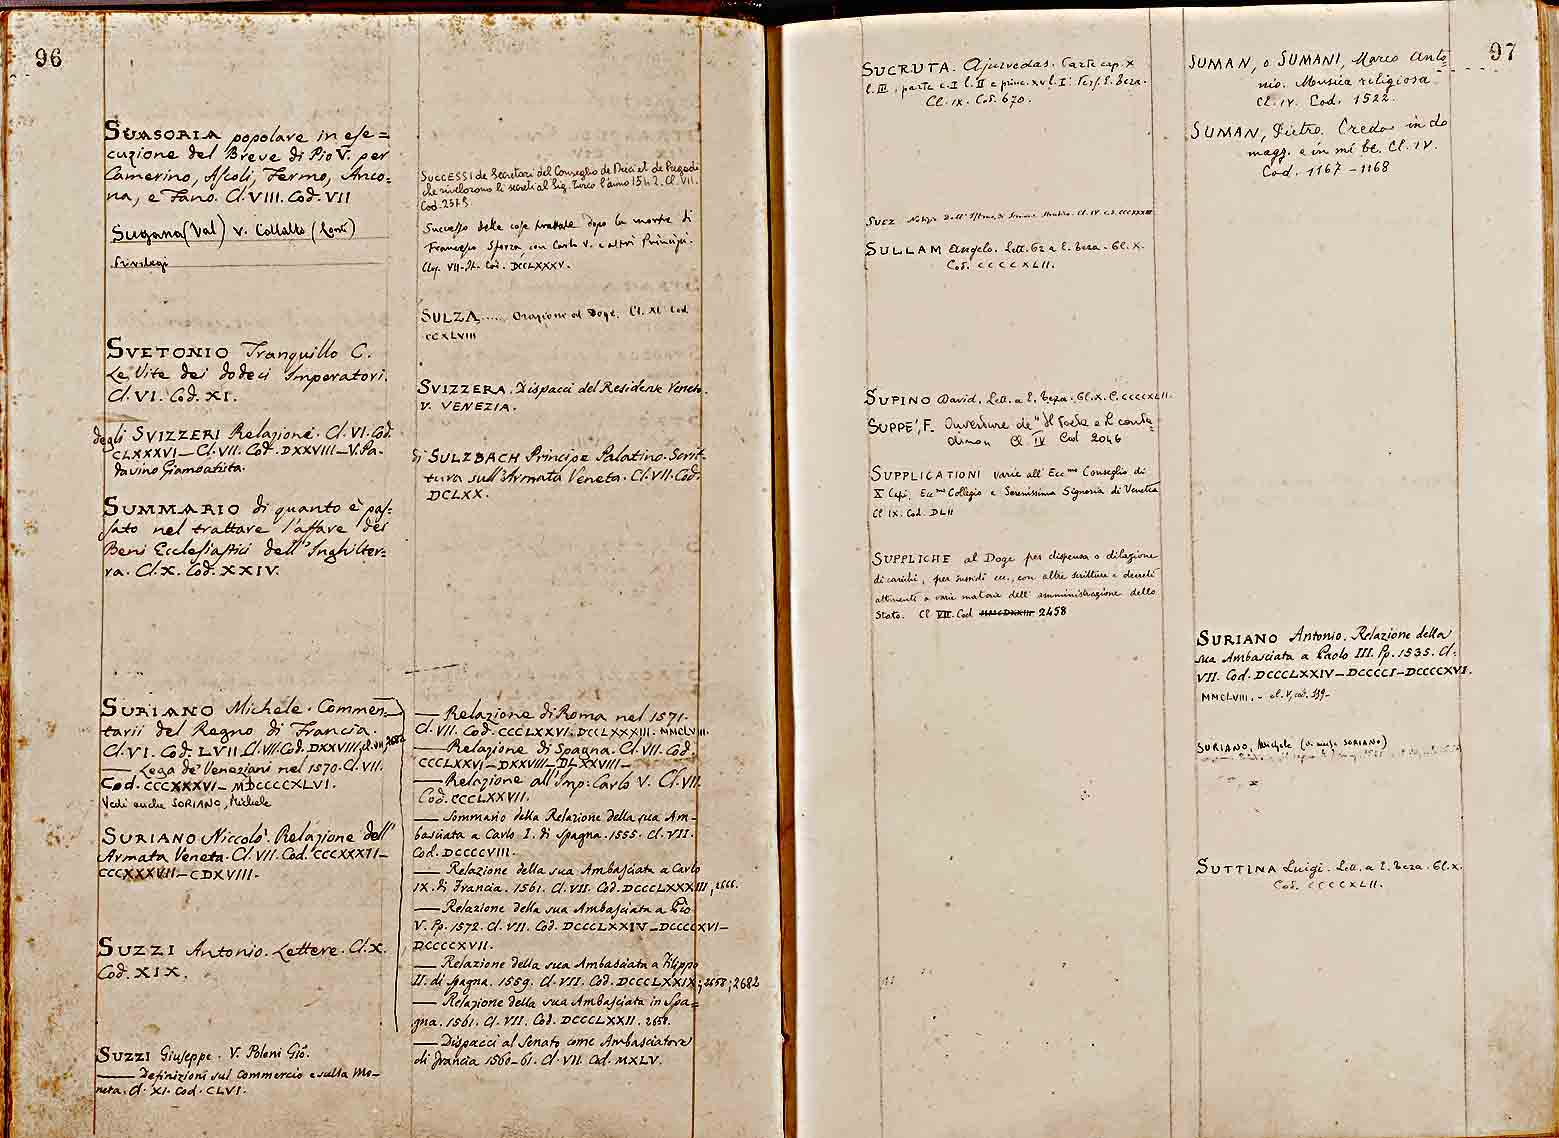 96
SUASORIA popolare in ese=
cuzione del Breve di Pio V. per
Camerino, Ascoli, Fermo, Anco=
na, e Fano. Cl. VIII. Cod. VII
Sugana (Val) v. Collalto (Conti)
Privilegi
SVETONIO Tranquillo C.
Le Vite dei dodeci Imperatori.
Cl. VI. Cod. XI.
degli SVIZZERI Relazione. Cl. VI. Cod.
CLXXXVI — Cl. VII. Cod. DXXVIII — V. Pa-
tavino Giambatista.
SUMMARIO di quanto è pas-
sato nel trattare l'affare dei
Beni Ecclesiastici dell'Inghilter=
ra. Cl. X. Cod. XXIV.
SURIANO Michele. Commen-
tarii del Regno di Francia.
Cl. VI. Cod. LVII. Cl. VII. Cod. DXXVIII;
— Lega de' Veneziani nel 1570. Cl. VII.
Cod. CCCXXXVI — MDCCCCXLVI.
Vedi anche SORIANO, Michele
SURIANO Niccolò. Relazione dell'
Armata Veneta. Cl. VII. Cod. CCCXXXII —
CCCXXXVII — CDXVIII.
SUZZI Antonio. Lettere. Cl. X.
Cod. XIX.
SUZZI Giuseppe. V. Poleni Gio.
— Definizioni sul Commercio e sulla Mo-
neta. Cl. XI. Cod. CLVI.
SUCCESSI de Secretari del Conseglio de Dieci et de Pregadi
che rivelorono li secreti al Sig. Turco l'anno 1542. Cl. VII.
Cod. 2575
Successo delle cose trattate dopo la morte di
Francesco Sforza con Carlo V. e altri Principi.
Clas. VII. It. Cod. DCCLXXXV.
SULZA ..... Orazione al Doge. Cl. XI Cod
CCXLVIII
SVIZZERA. Dispacci del Residente Veneto.
V. VENEZIA.
di SULZBACH Principe Palatino. Scrit-
tura sull'Armata Veneta. Cl. VII. Cod.
DCLXX.
— Relazione di Roma nel 1571.
Cl. VII. Cod. CCCLXXVI. DCCLXXXIII. MMCLVIII.
— Relazione di Spagna. Cl. VII. Cod.
CCCLXXVI — DXXVIII — DLXXVIII —
— Relazione all'Imp. Carlo V. Cl. VII.
Cod. CCCLXXVII.
— Sommario della Relazione della sua Am-
basciata a Carlo I. di Spagna. 1555. Cl. VII.
Cod. DCCCCVIII.
— Relazione della sua Ambasciata a Carlo
IX. di Francia. 1561. Cl. VII. Cod. DCCCLXXXIII, 2666.
— Relazione della sua Ambasciata a Pio
V. Pp. 1572. Cl. VII. Cod. DCCCLXXIV — DCCCCXVI —
DCCCCXVII.
— Relazione della sua Ambasciata a Filippo
II. di Spagna. 1559. Cl. VII. Cod. DCCCLXXIX; 2658; 2682
— Relazione della sua Ambasciata in Spa=
gna. 1561. Cl. VII. Cod. DCCCLXXII. 2658.
— Dispacci al Senato come Ambasciatore
di Francia 1560-61. Cl. VII. Cod. MXLV.
97
SUCRUTA. Ajurvedas. Parte cap. X
l. III, parte c. I l. II e princ. XV l. I. E. Teza.
Cl. IX. Cod. 670.
SUEZ
SULLAM Angelo. Lett. 62 a E. Teza. Cl. X.
Cod. CCCCXLII.
SUPINO David. Lett. a E. Teza. Cl. X. C. CCCCXLII.
SUPPE', F. Ouverture de "Il Poeta e il conta-
dino" Cl IV Cod 2046
SUPPLICATIONI varie all'Ecc.mo Conseglio di
X Capi, Ecc.mo Collegio e Serenissima Signoria di Venetia
Cl IX. Cod. DLII
SUPPLICHE al Doge per dispensa o dilazione
di carichi, per sussidi ecc., con altre scritture e decreti
attinenti a varie materie dell'amministrazione dello
Stato. Cl VII. Cod MMCDXXIII 2458
SUMAN, o SUMANI, Marco Anto=
nio. Musica religiosa.
Cl. IV. Cod. 1522.
SUMAN, Pietro. Credo in do
magg. e in mi be. Cl. IV.
Cod. 1167-1168
SURIANO Antonio. Relazione della
sua Ambasciata a Paolo III. Pp. 1535. Cl.
VII. Cod. DCCCLXXIV — DCCCCI — DCCCCXVI.
MMCLVIII.
SURIANO, Michele (V. anche SORIANO)
SUTTINA Luigi. Lett. a E. Teza. Cl. X.
Cod. CCCCXLII.